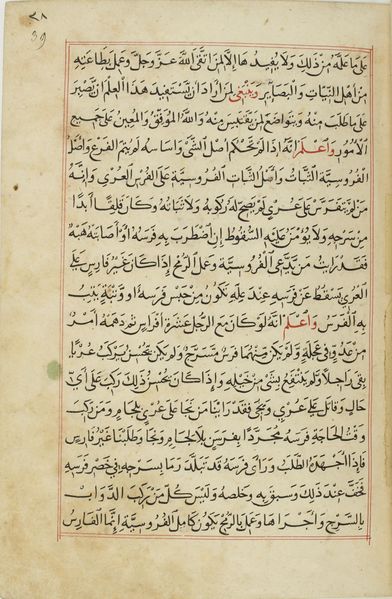 ٢٨
39
على ما علمه من ذلك ولا يفيدها إلا لمن اتقى الله عز وجل وعمل بطاعته
من أهل النيات والبصائر وينبغي لمن أراد أن يستفيد هذا العلم أن يصبر
على ما طلب منه ويتواضع لمن يقتبس منه والله الموفق والمعين على جميع
الأمور واعلم أنه إذا لم تحكم أصل الشيء وأساسه لم يتم الفرع وأصل
الفروسية الثبات وأصل الثبات الفروسية على الفرس العري وأنه
من لم يتفرس على عري لم يصح له ركوبه ولا ثباته وكان قلقا أبدا
من سرجه ولا يؤمن عليه السقوط إن اضطرب به فرسه أو أصابته هبة
فقد رأيت من يدعي الفروسية وعمل الرمح إذا كان غير فارس على
العري يسقط عن فرسه عند علة تكون من حبس فرسه أو وثبة يثب
به الفرس واعلم أنه لو كان مع الرجل عشرة أفراس ثم دهمه أمر
من عدو في عجلة ولم يكن منهما فرس مسرج ولم يكن يحسن يركب عريا
بقي راجلا ولم ينتفع بشئ من خيله وإذا كان يحسن ذلك ركب على أي
حال وقاتل على عري ونجى فقد رأينا من نجا على عري بلجام ومن ركب
وقت الحاجة فرسه مجردا بفرس بلا لجام ونجا وطلبنا غير فارس
فإذا أجهده الطلب ورأى فرسه قد تبلد رما بسرجه في حضر فرسه
فخف عند ذلك وسبق به وخلصه وليس كل من ركب الدواب
بالسرج وأجراها وعمل بالرمح يكون كامل الفروسية إنما الفارس